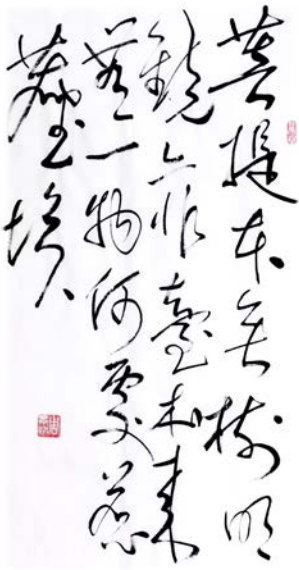 菩提本無樹明
鏡亦非臺本來
無一物何處惹
塵埃